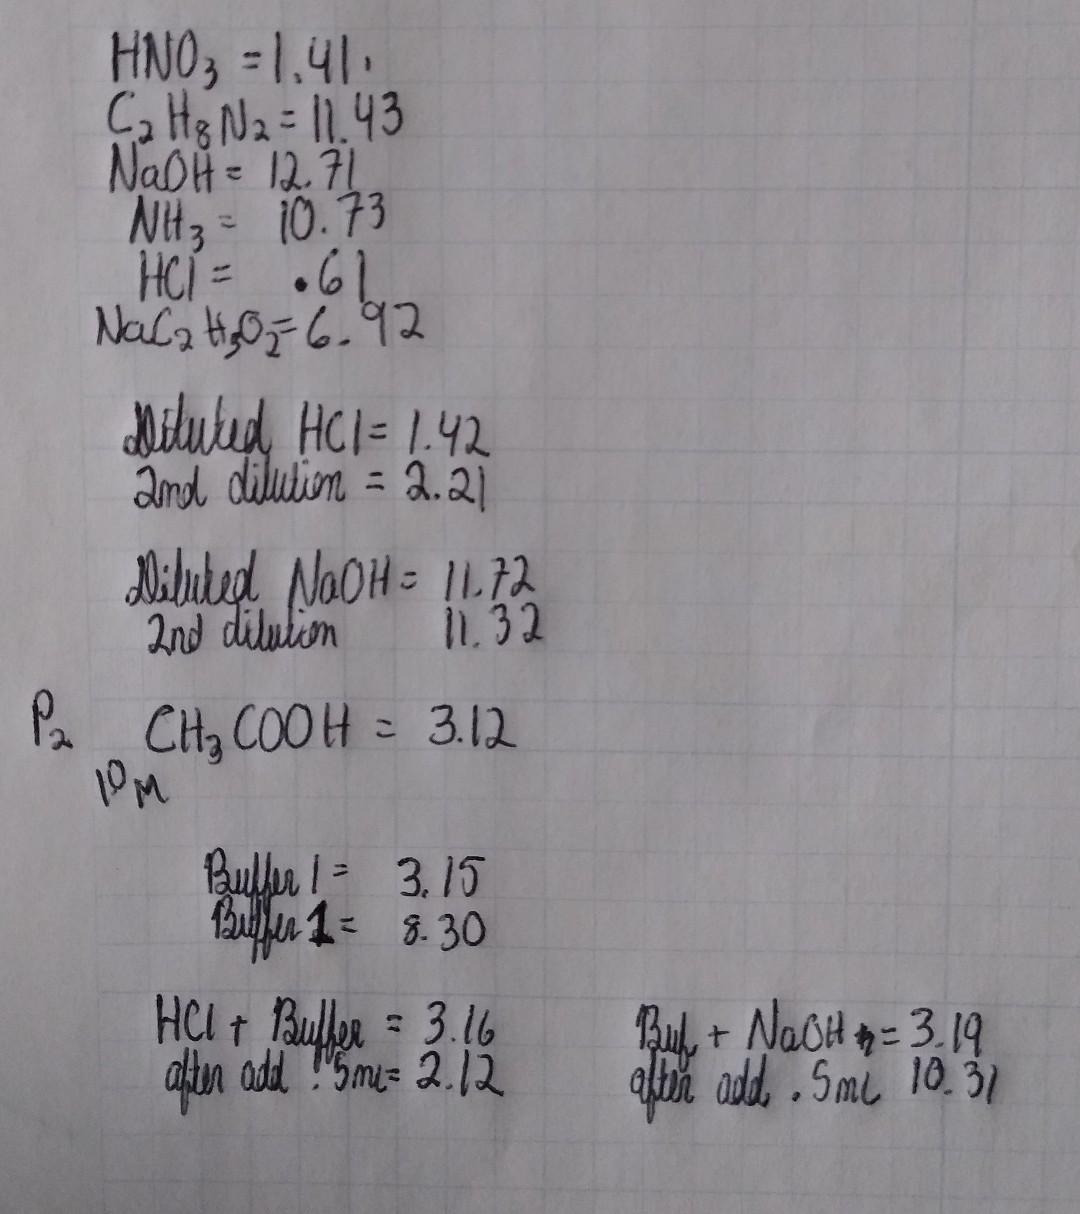 HNO3 = 1.41.
C2H8N2 = 11.43
NaOH = 12.71
NH3 = 10.73
HCl = .61
NaC2H3O2 = 6.92
Diluted HCl = 1.42
2nd dilution = 2.21
Diluted NaOH = 11.72
2nd dilution 11.32
P2 CH3COOH = 3.12
10M
Buffer 1 = 3.15
Buffer 1 = 8.30
HCl + Buffer = 3.16
after add .5mL = 2.12
Buf + NaOH = 3.19
after add .5mL 10.31